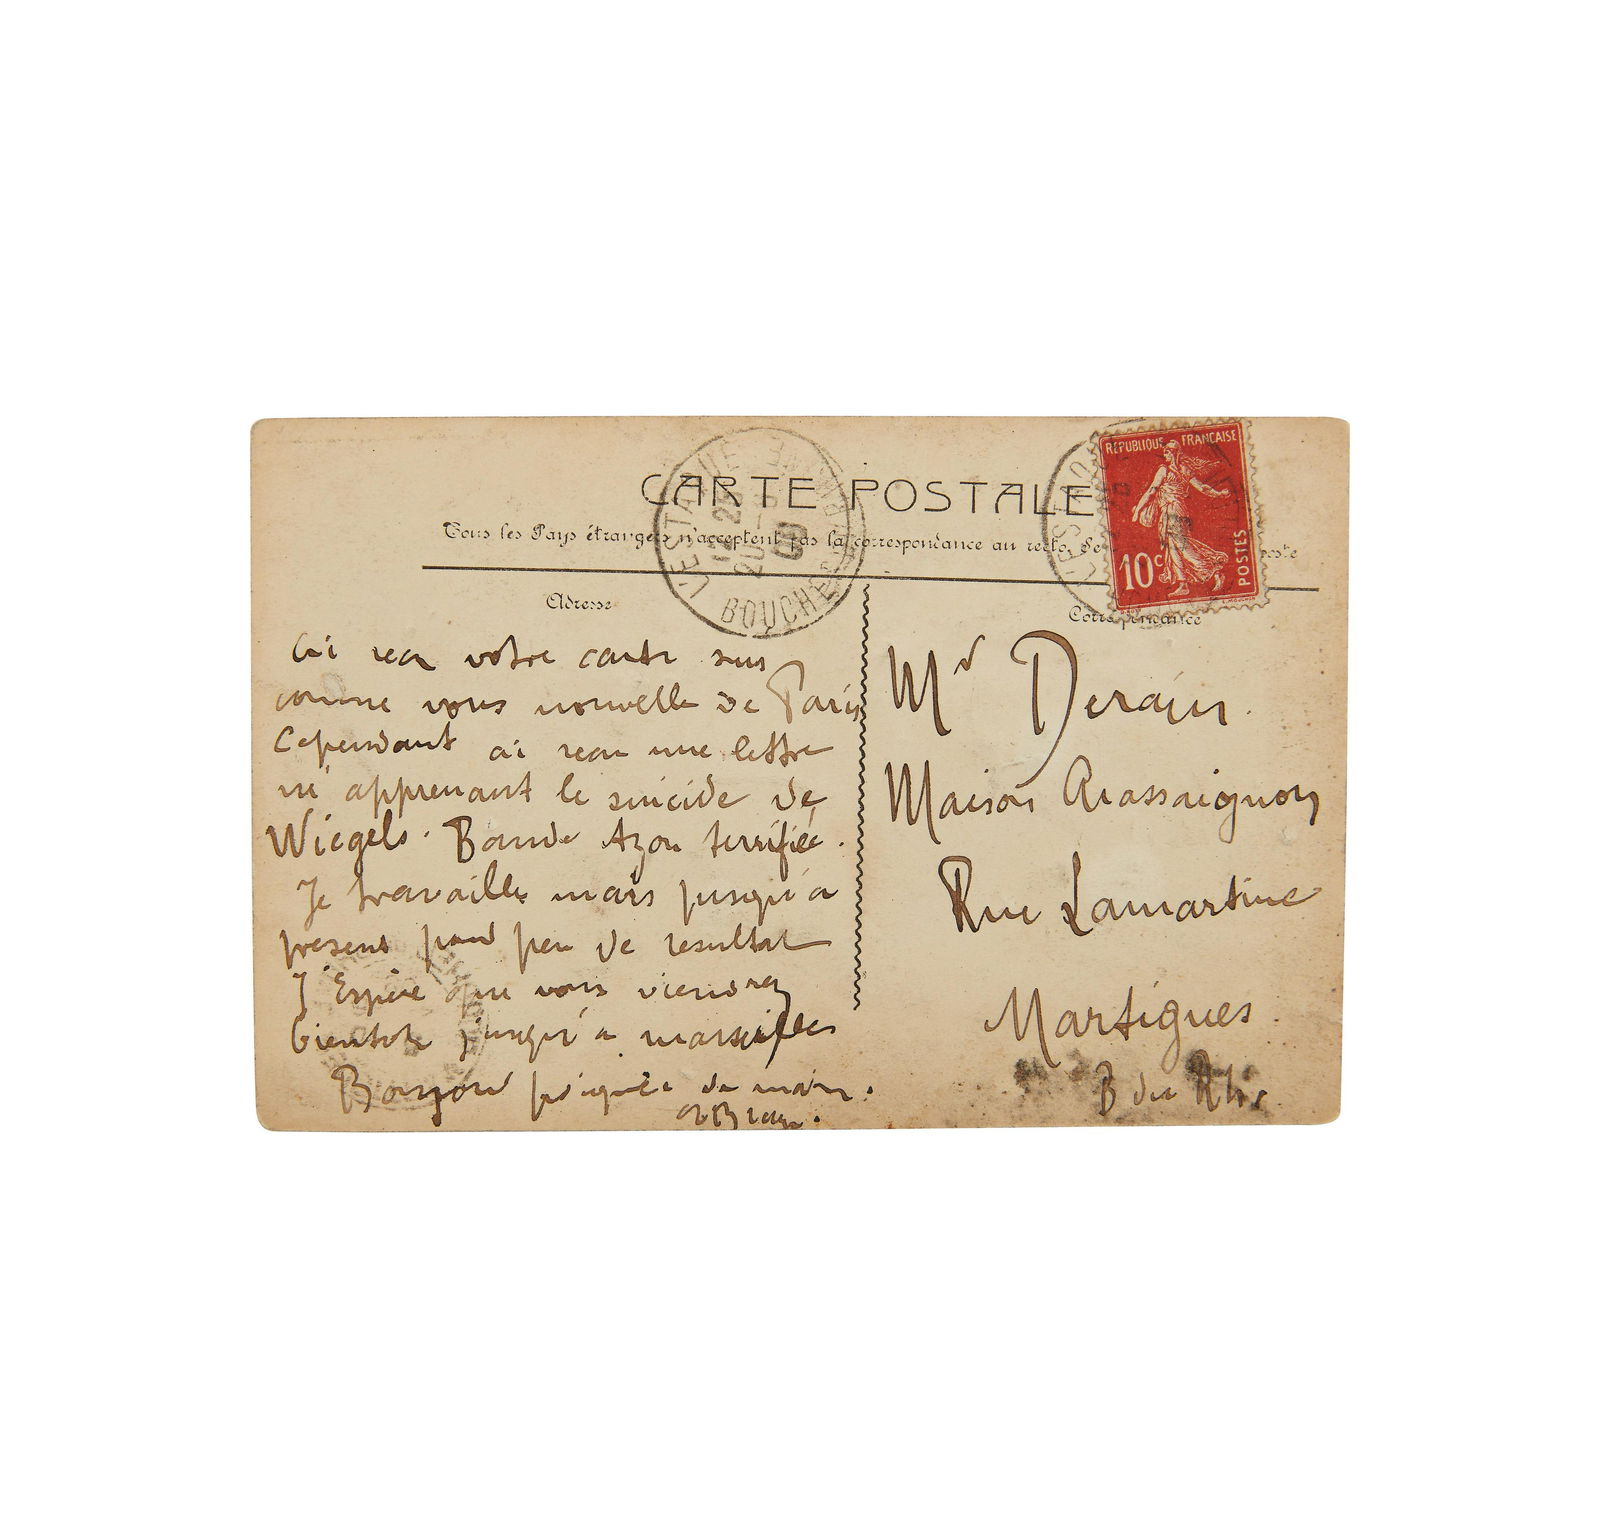 CARTE POSTALE
Tous les Pays étrangers n'acceptent pas la correspondance au recto. Se poste
Adresse
Correspondance
L'ESTAQUE
BOUCHES DU RHONE
REPUBLIQUE FRANÇAISE
10c
POSTES
ai recu votre carte suis
comme vous nouvelle de Paris
Cependant ai recu une lettre
m'apprenant le suicide de
Wiegels. Bande Azon terrifiée.
Je travaille mais jusqu'a
present peu de resultat
J'Espère que vous viendrez
bientot jusqu'a marseilles
Bonjour poignée de main.
GBraque.
Mr Derain.
Maison
Rue Lamartine
Martigues.
B du Rhône